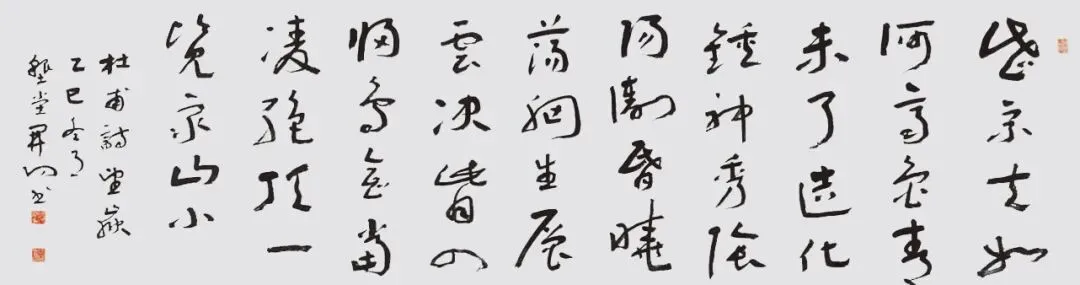 岱宗夫如
何齊魯青
未了造化
鍾神秀陰
陽割昏曉
蕩胸生層
雲決眥入
歸鳥會當
凌絕頂一
覽衆山小
杜甫詩望嶽
乙巳冬月
堂書